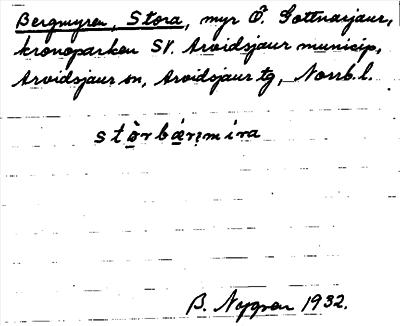 Bergmyren, Stora, myr Ö. Gottnarjaur,
kronoparken SV. Arvidsjaur municip,
Arvidsjaur sn, Arvidsjaur tg, Norrb. l.
stòrbǽrṃmíra
B. Nygren 1932.